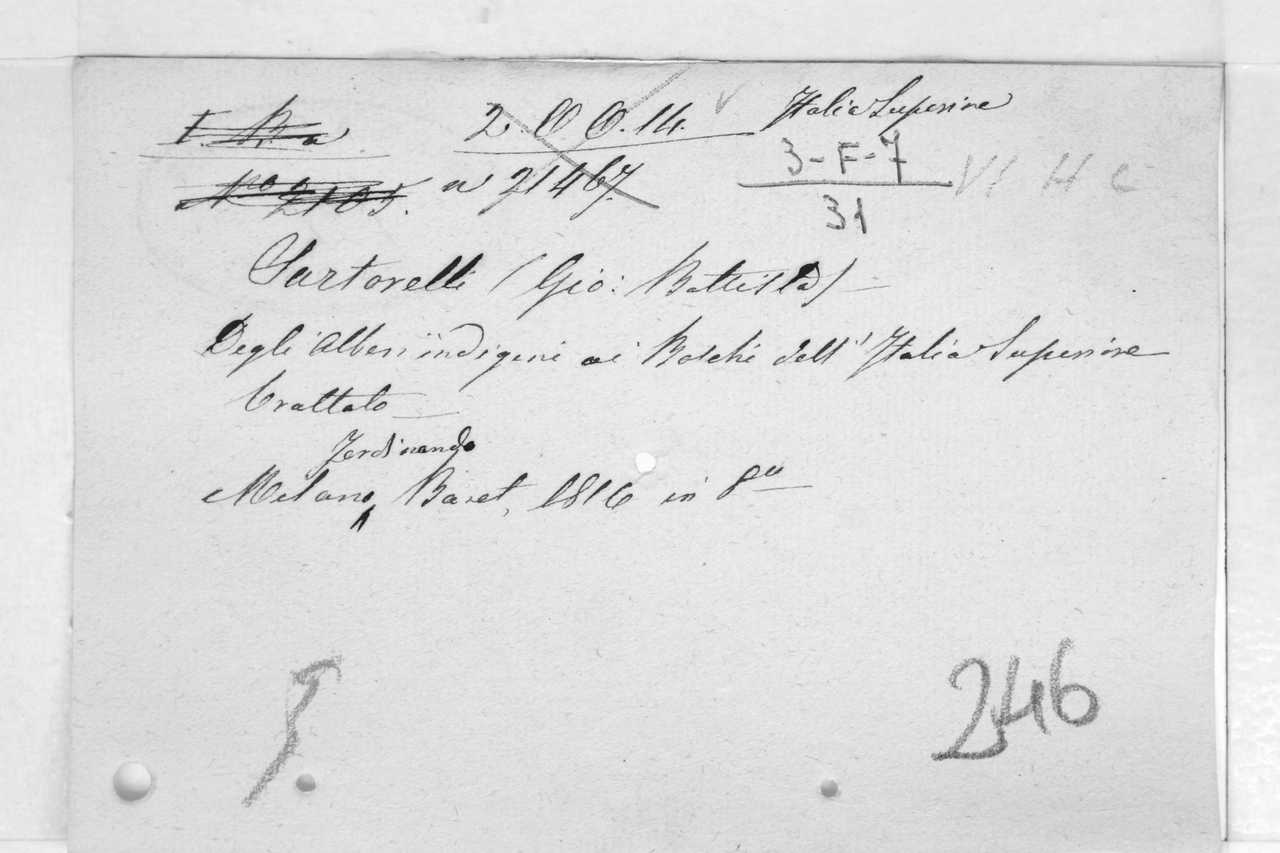 I. B. a 2. O O. 14. Italia Superiore
3-F-7
VI H C
No 2105. n 21467.
31
Sartorelli (Gio: Battista)
Degli Alberi indigeni ai Boschi dell' Italia Superiore
Trattato
Ferdinando
Milano, Baret, 1816 in 8º
246